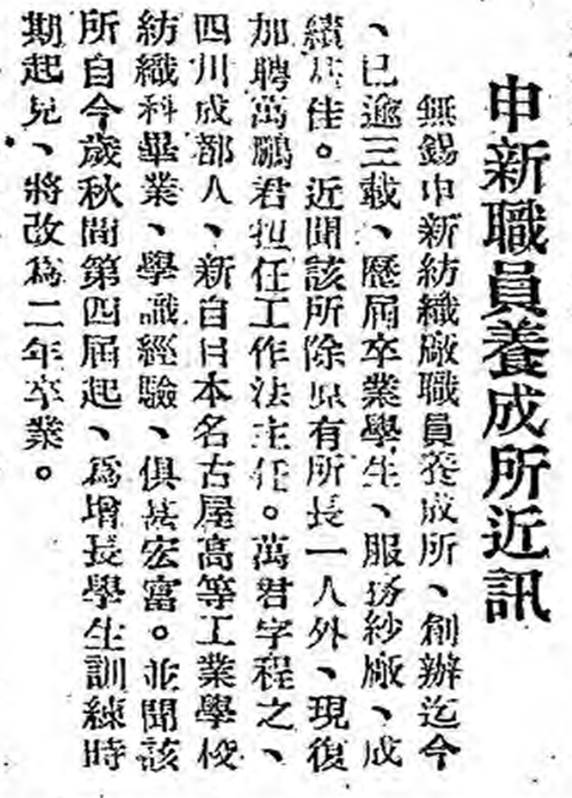 申新職員養成所近訊
無錫申新紡織廠職員養成所、創辦迄今
、已逾三載、歷屆卒業學生、服務紗廠、成
績甚佳。近聞該所除原有所長一人外、現復
加聘萬鵬君担任工作法主任。萬君字程之、
四川成都人、新自日本名古屋高等工業學校
紡織科畢業、學識經驗、俱甚宏富。並聞該
所自今歲秋間第四屆起、爲增長學生訓練時
期起見、將改爲二年卒業。